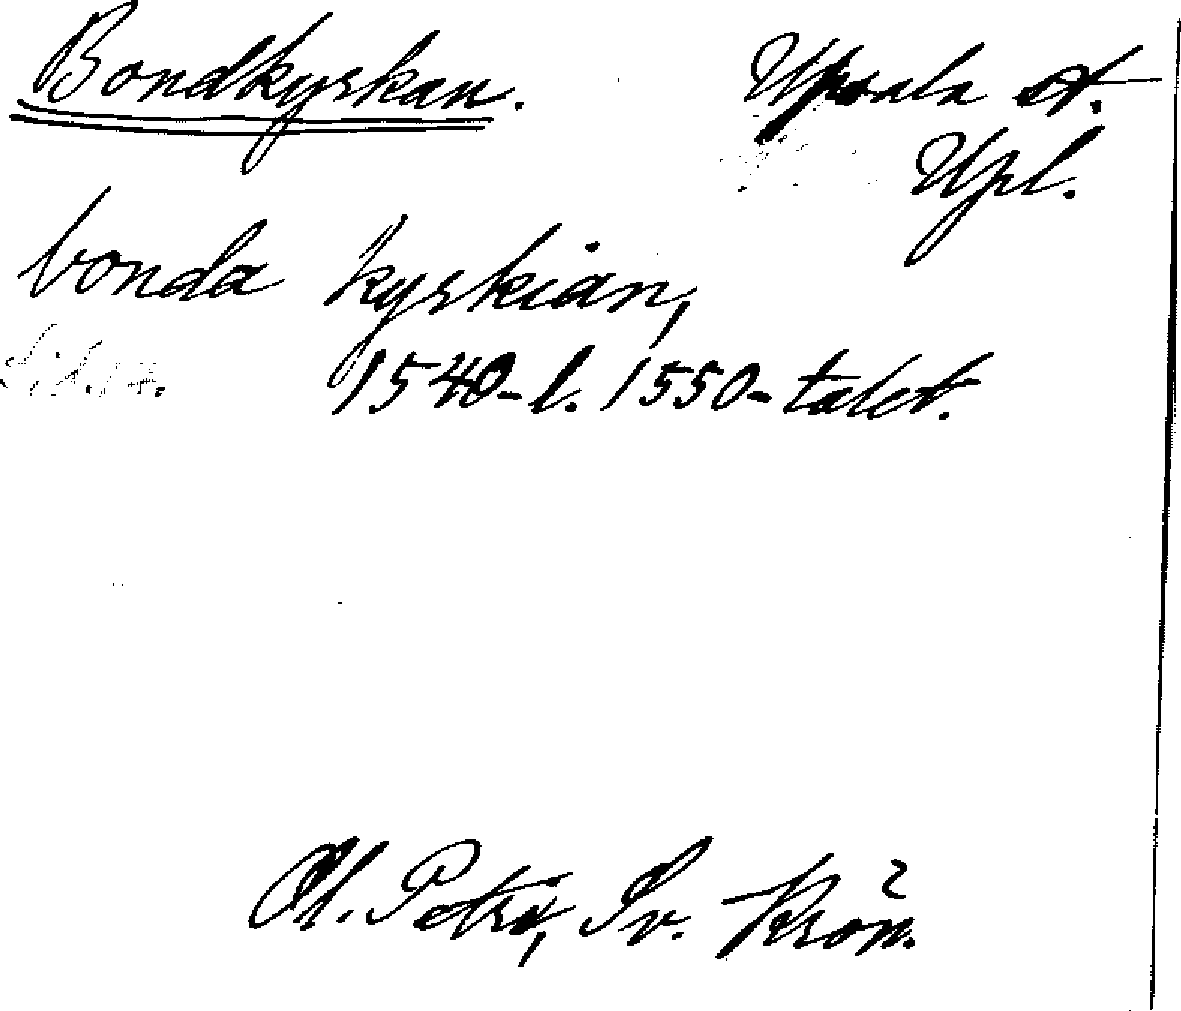 Bondkyrkan. Upsala st.
Upl.
bonda kyrkian,
1540- l. 1550-talet.
Ol. Petri, Sv. Krön.